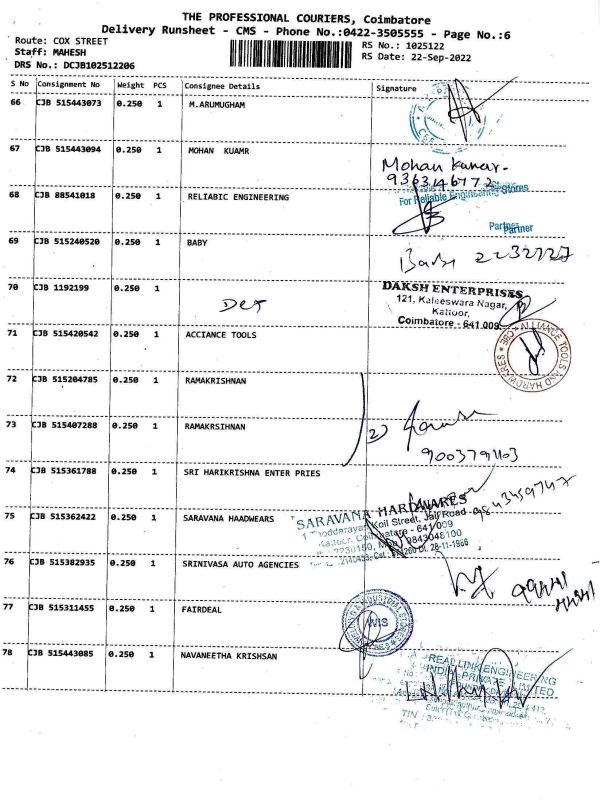 THE PROFESSIONAL COURIERS, Coimbatore
Delivery Runsheet - CMS - Phone No.:0422-3505555 - Page No.:6
Route: COX STREET
Staff: MAHESH
DRS No.: DCJB102512206
RS No.: 1025122
RS Date: 22-Sep-2022
S No Consignment No Weight PCS Consignee Details Signature
66 CJB 515443073 0.250 1 M.ARUMUGHAM
67 CJB 515443094 0.250 1 MOHAN KUAMR
Mohan Kumar.
9363146772
68 CJB 88541018 0.250 1 RELIABIC ENGINEERING
For Reliable Engineering Stores
Partner
Partner
69 CJB 515240520 0.250 1 BABY
70 CJB 1192199 0.250 1
DAKSH ENTERPRISES
121, Kaleeswara Nagar,
Kattoor,
Coimbatore - 641 009.
71 CJB 515420542 0.250 1 ACCIANCE TOOLS
ALLIANCE TOOLS AND HARDWARES * CBE *
72 CJB 515204785 0.250 1 RAMAKRISHNAN
73 CJB 515407288 0.250 1 RAMAKRSIHNAN
74 CJB 515361788 0.250 1 SRI HARIKRISHNA ENTER PRIES
75 CJB 515362422 0.250 1 SARAVANA HAADWEARS
SARAVANA HARDWARES
Koil Street, Jail Road
641 009
76 CJB 515382935 0.250 1 SRINIVASA AUTO AGENCIES
77 CJB 515311455 0.250 1 FAIRDEAL
78 CJB 515443085 0.250 1 NAVANEETHA KRISHSAN
REAL LINK ENGINEERING
INDIA PRIVATE LIMITED
TIN